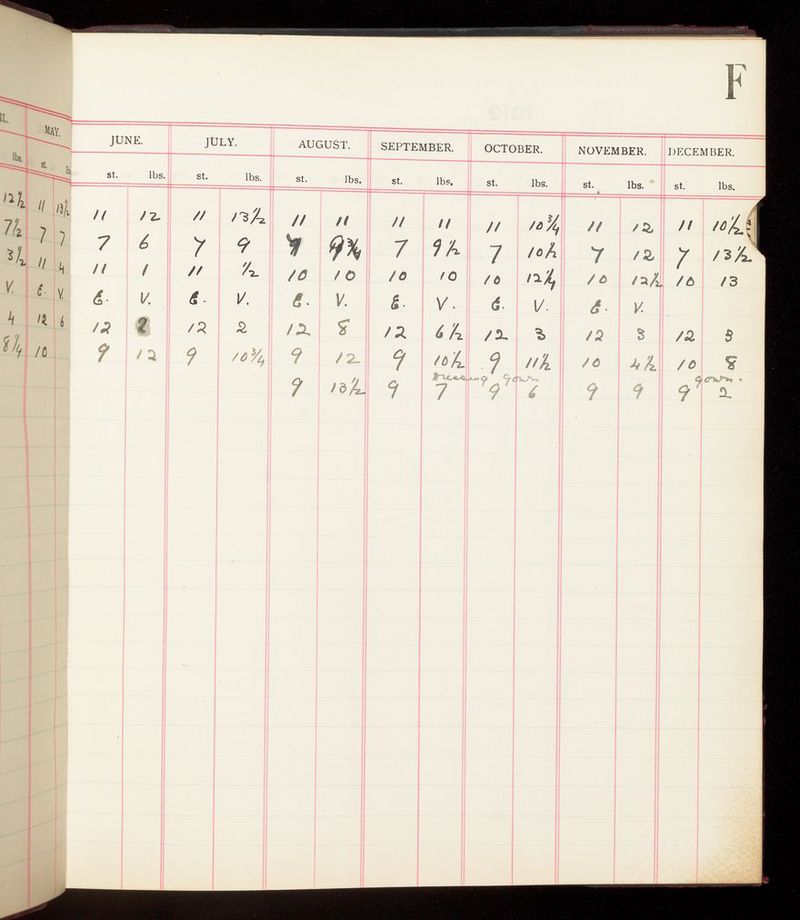 F
MAY. JUNE. JULY. AUGUST. SEPTEMBER. OCTOBER. NOVEMBER. DECEMBER.
lbs. st. st. lbs. st. lbs. st. lbs. st. lbs. st. lbs. st. lbs. st. lbs.
12½ 11 13½ 11 12 11 13½ 11 11 11 11 11 10¾ 11 12 11 10½
7½ 7 7 7 6 7 9 7 9¾ 7 9½ 7 10½ 7 12 7 13½
3½ 11 4 11 1 11 ½ 10 10 10 10 10 12¼ 10 12½ 10 13
V. E. V. E. V. E. V. E. V. E. V. E. V. E. V.
4 12 6 12 2 12 2 12 8 12 6½ 12 3 12 3 12 3
8¼ 10 9 12 9 10¾ 9 12 9 10½ 9 11½ 10 4½ 10 8
Dressing gown gown.
9 13½ 9 7 9 6 9 9 9 2